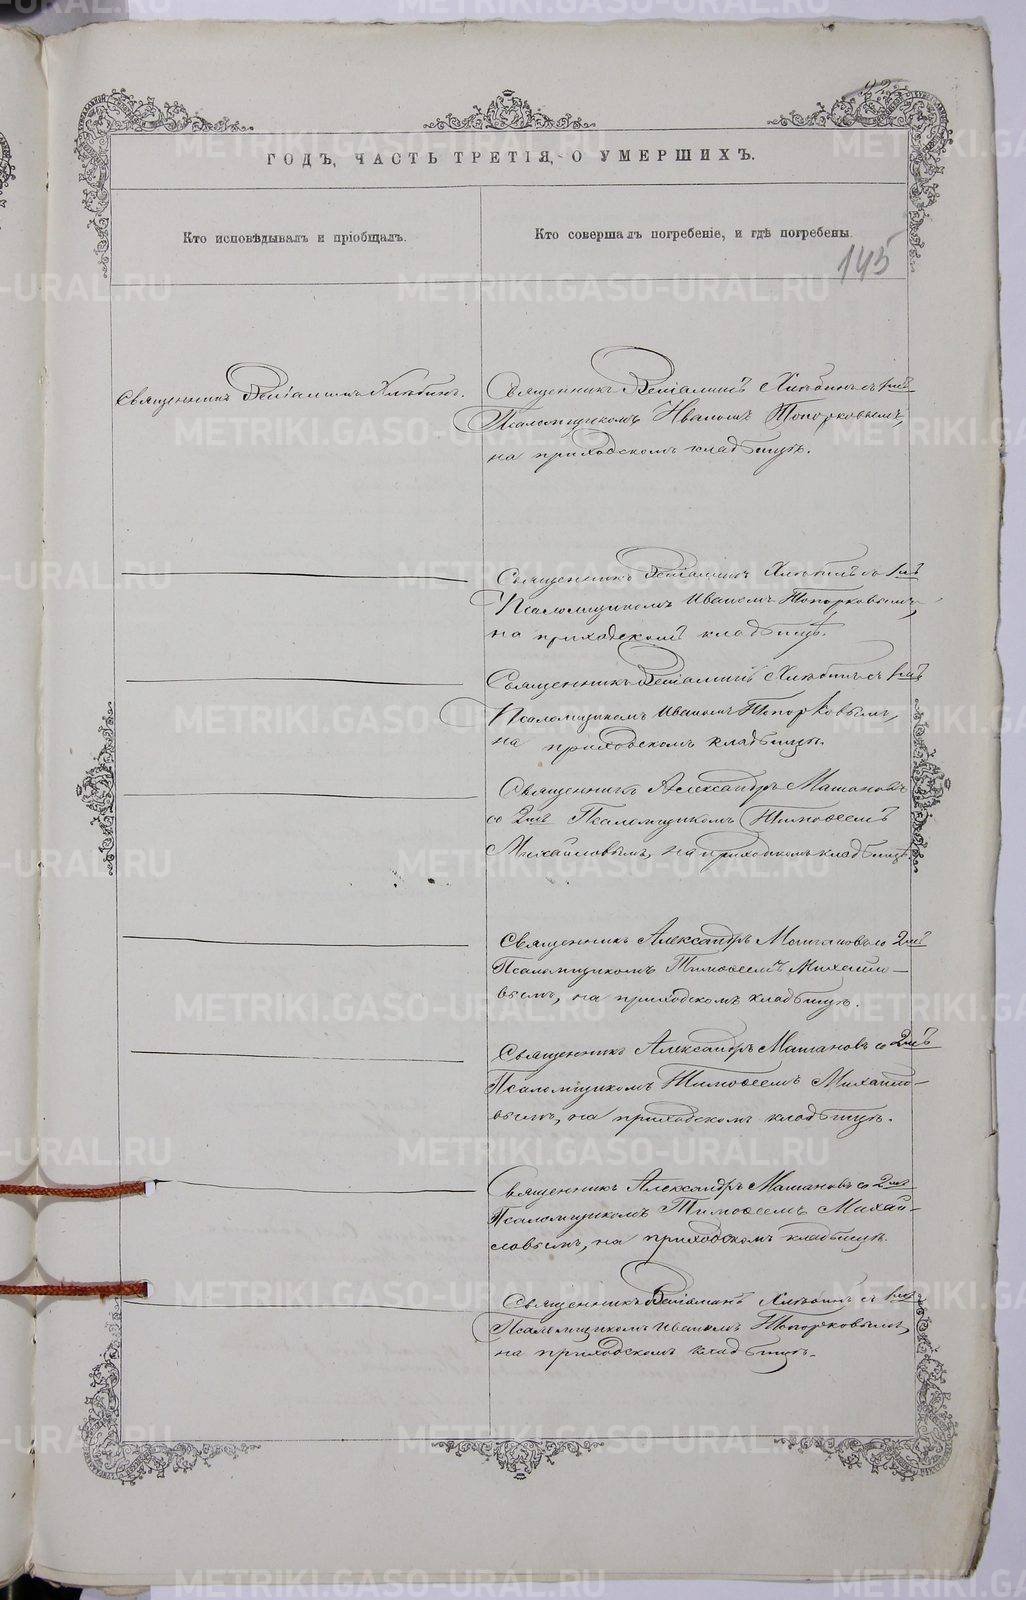 ГОДЪ, ЧАСТЬ ТРЕТІЯ, О УМЕРШИХЪ.
Кто исповѣдывалъ и пріобщалъ.
Кто совершалъ погребеніе, и гдѣ погребены.
145
Священникъ Веніаминъ Хлѣбинъ.
Священникъ Веніаминъ Хлѣбинъ съ 1мъ
Псаломщикомъ Иваномъ Топорковымъ,
на приходскомъ кладбищѣ.
Священникъ Веніаминъ Хлѣбинъ съ 1мъ
Псаломщикомъ Иваномъ Топорковымъ,
на приходскомъ кладбищѣ.
Священникъ Веніаминъ Хлѣбинъ съ 1мъ
Псаломщикомъ Иваномъ Топорковымъ,
на приходскомъ кладбищѣ.
Священникъ Александръ Машановъ
со 2мъ Псаломщикомъ Тимоѳеемъ
Михайловымъ, на приходскомъ кладбищѣ
Священникъ Александръ Машановъ со 2мъ
Псаломщикомъ Тимоѳеемъ Михайло-
вымъ, на приходскомъ кладбищѣ.
Священникъ Александръ Машановъ со 2мъ
Псаломщикомъ Тимоѳеемъ Михайло-
вымъ, на приходскомъ кладбищѣ.
Священникъ Александръ Машановъ со 2мъ
Псаломщикомъ Тимоѳеемъ Михай-
ловымъ, на приходскомъ кладбищѣ.
Священникъ Веніаминъ Хлѣбинъ съ 1мъ
Псаломщикомъ Иваномъ Топорковымъ,
на приходскомъ кладбищѣ.
METRIKI.GASO-URAL.RU